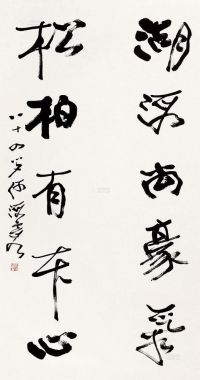 湖海尚豪氣
松柏有本心
八十四